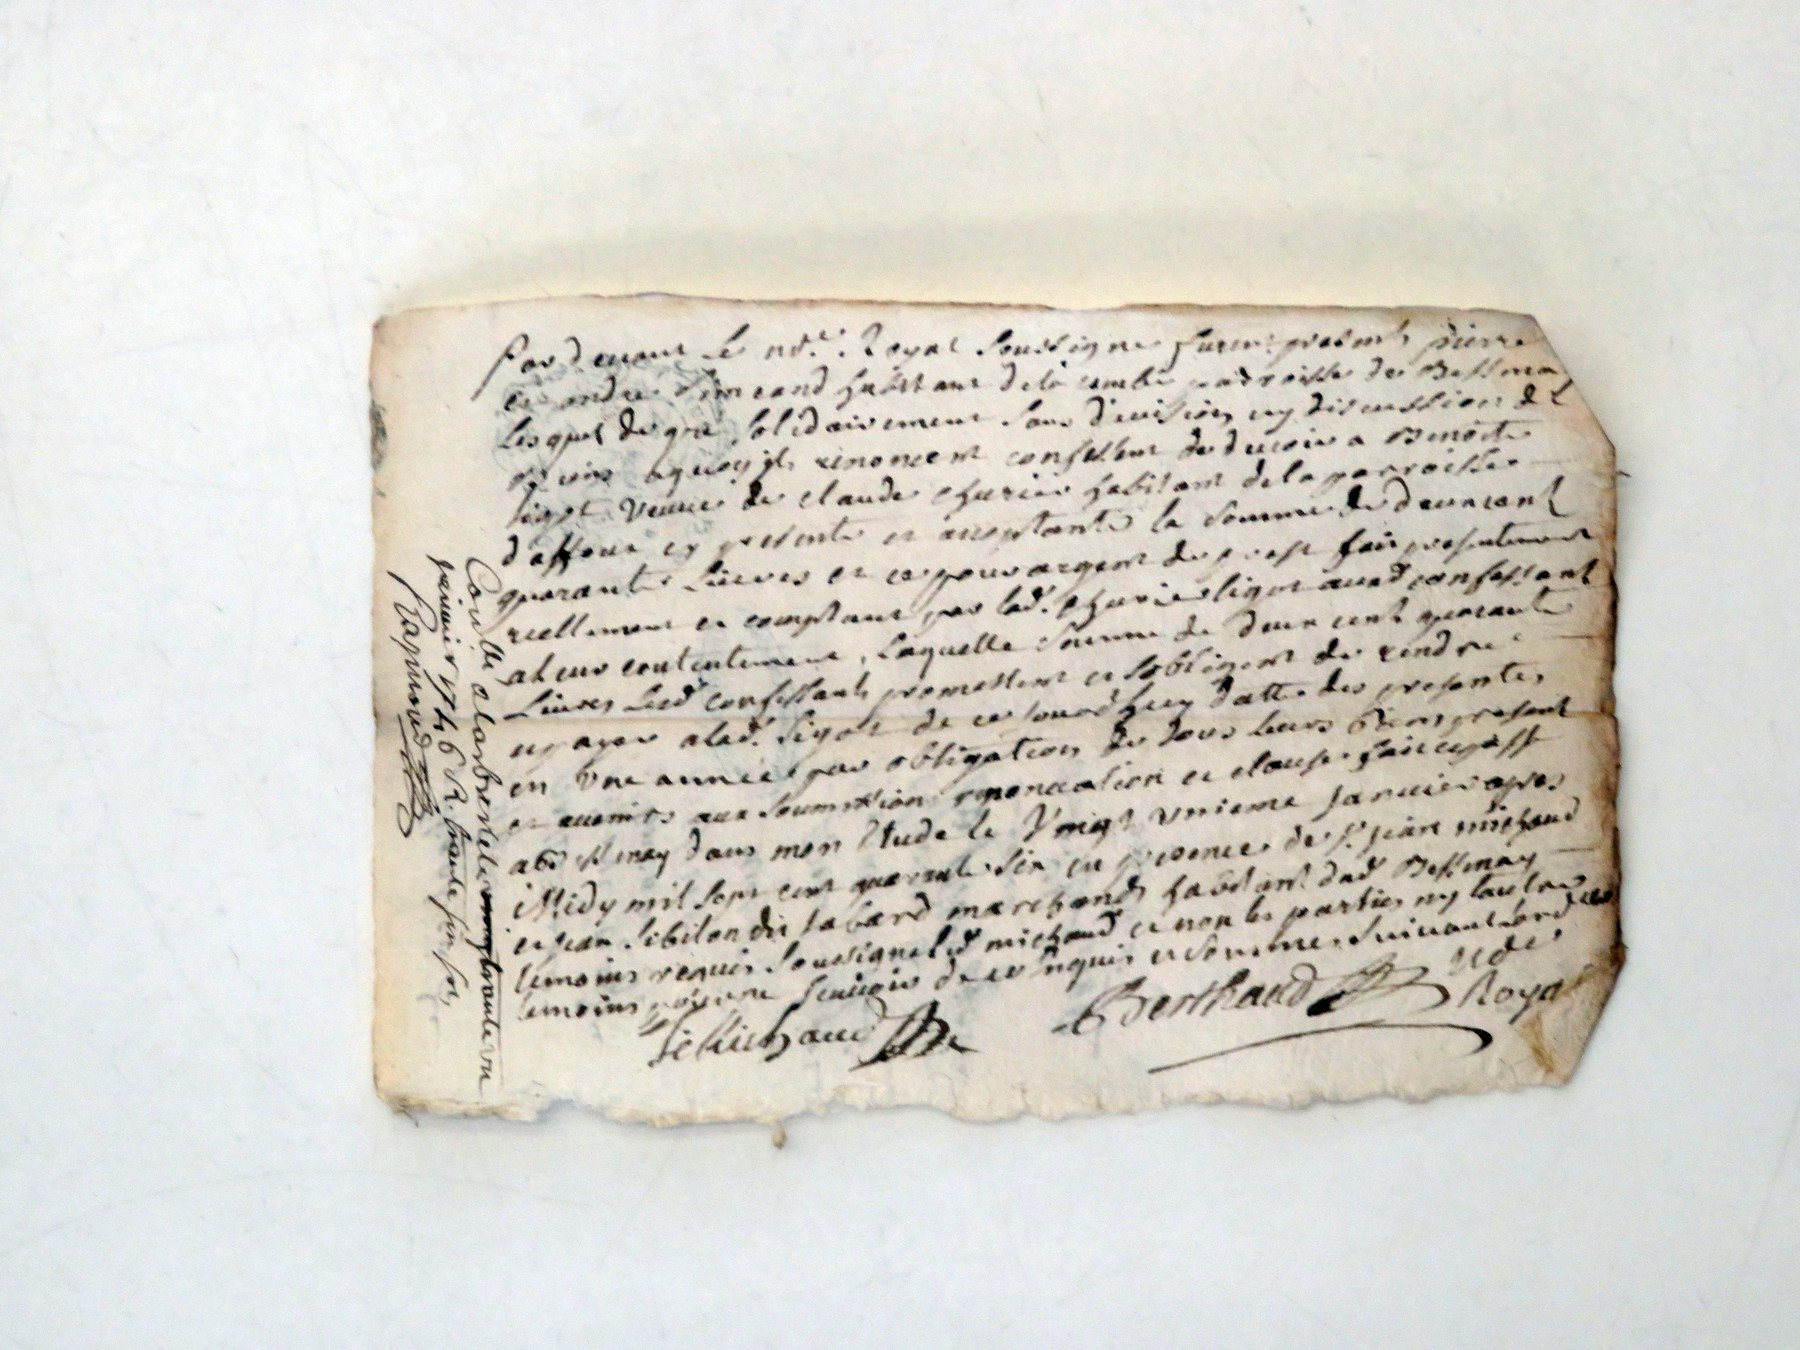 Pardevant le no.re Royal soussigné furent presents pierre
et andre simeand habitant de la combe parroisse de Bessenay
lesquels de gré solidairement sans division ny discussion de
biens a quoy ils renoncent confessent de devoir a Benoite
ligot veuve de claude churie habitant de la parroisse
d'affoux cy presente et acceptante la somme de deux cent
quarante livres et ce pour argent de prest fait presentement
reellement et comptant par lad.e churie ligot auxd confessant
a leur contentement, laquelle somme de deux cent quarante
livres lesd confessants promettent et s'obligent de rendre
et payer a lad.e ligot de ce jourdhuy datte des presentes
en une année par obligation de tous leurs biens present
et avenirs aux soumission renonciation et clauses fait et passé
aud Bessenay dans mon Etude le vingt unieme janvier apres
Midy mil sept cent quarante six en presence de s.r jean michaud
et jean sibilon dit tabard marchands habitant dud Bessenay
temoins requis soussigné led michaud et non les parties ny l'autre
temoins pour ne scavoir de ce enquis et sommes suivant lord
Michaud Berthaud n.re
Royal
Con.llé a larbresle le vingt trente un
janvier 1746 R. trente six sols
Raymond